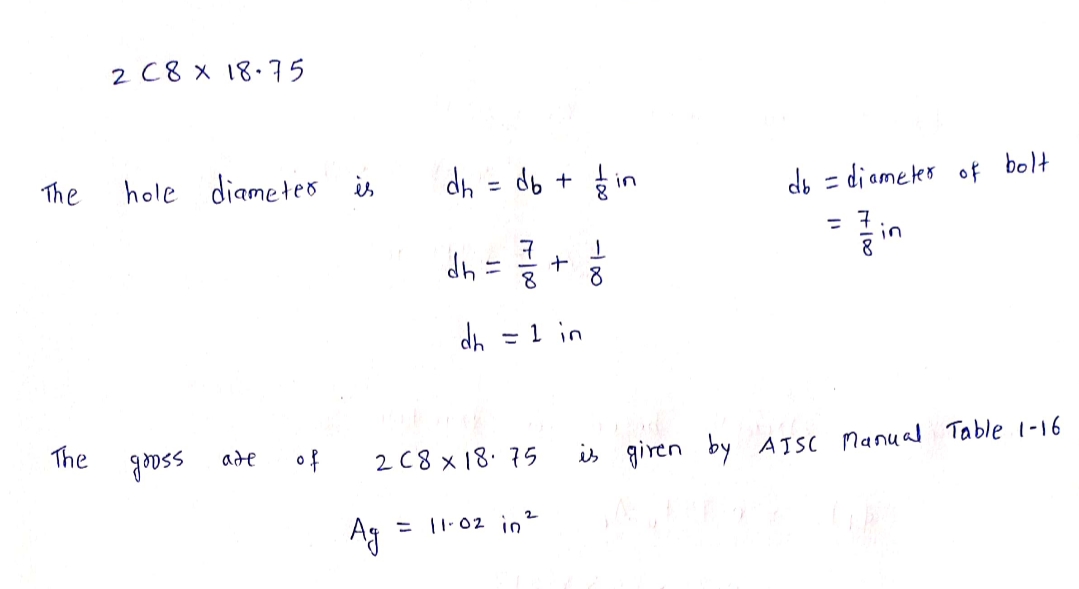 2 C8 x 18.75
The hole diameter is dh = db + 1/8 in db = diameter of bolt
= 7/8 in
dh = 7/8 + 1/8
dh = 1 in
The gross are of 2 C8 x 18.75 is given by AISC Manual Table 1-16
Ag = 11.02 in²